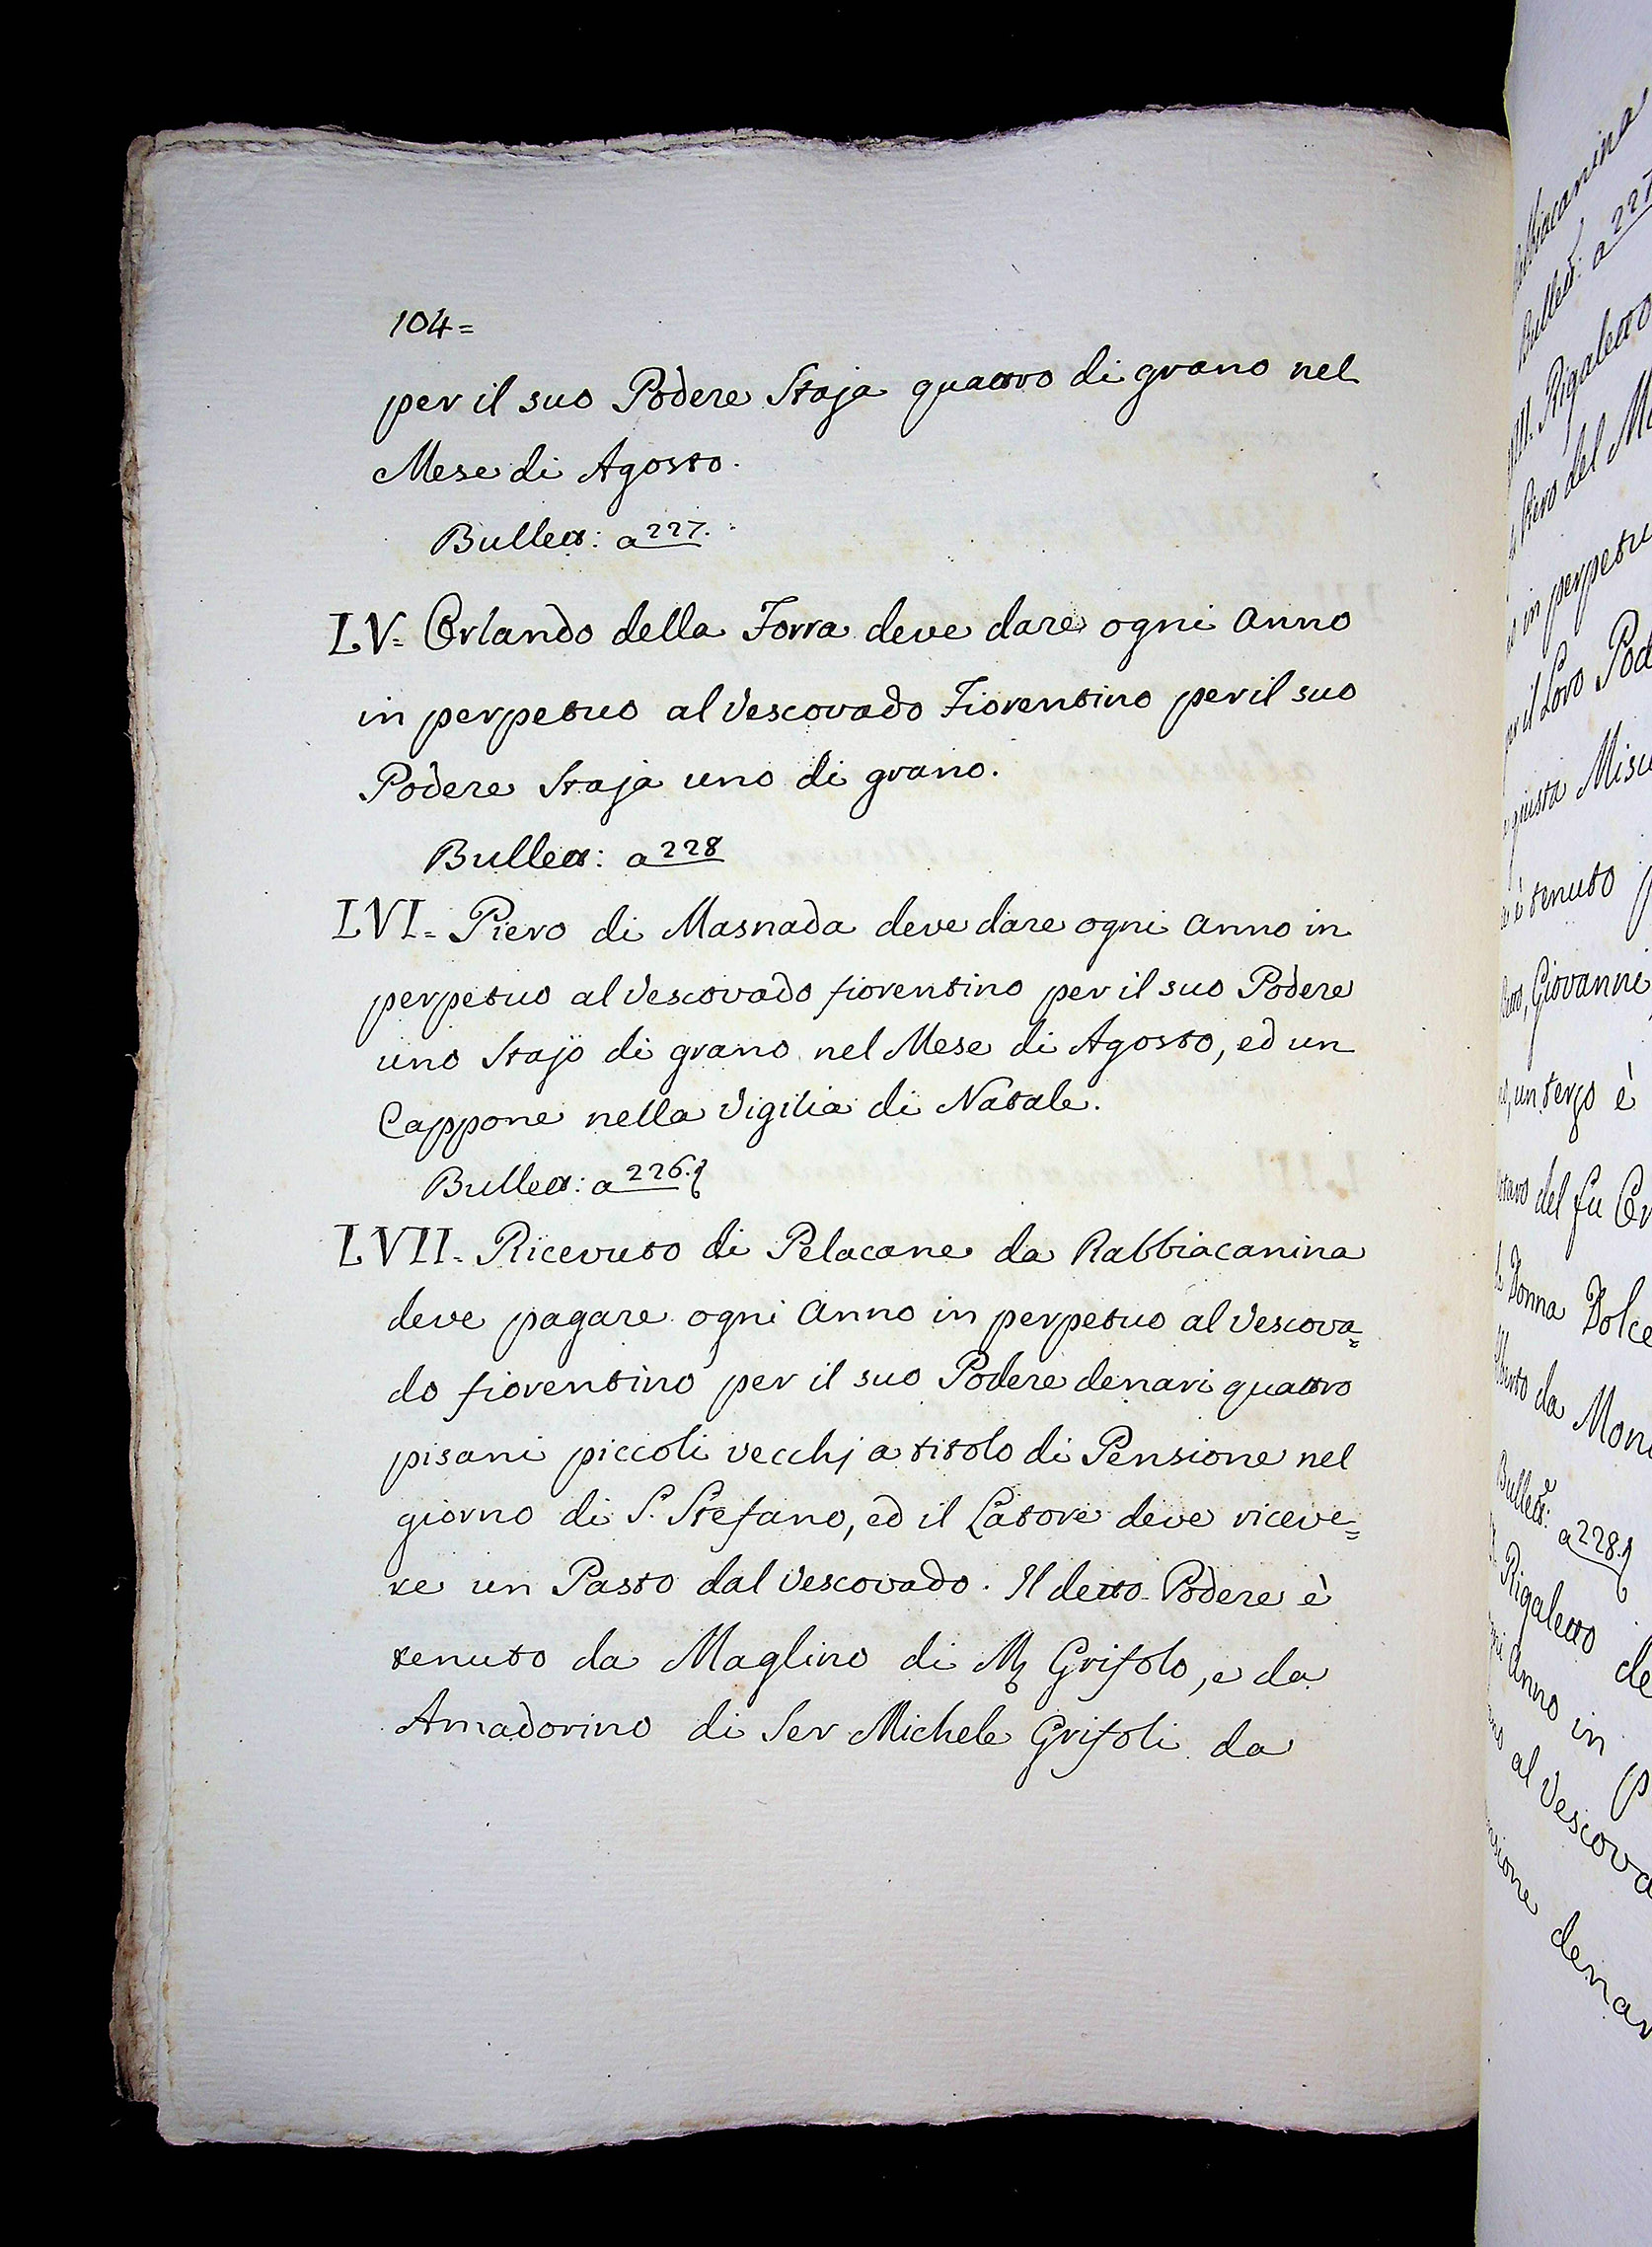 104=
per il suo Podere Staja quattro di grano nel
Mese di Agosto.
Bullett: a 227.
LV= Orlando della Torra deve dare ogni anno
in perpetuo al Vescovado Fiorentino per il suo
Podere Staja uno di grano.
Bullett: a 228
LVI= Piero di Masnada deve dare ogni anno in
perpetuo al Vescovado fiorentino per il suo Podere
uno Stajo di grano nel Mese di Agosto, ed un
Cappone nella Vigilia di Natale.
Bullett: a 226.
LVII= Ricevuto di Pelacane da Rabbiacanina
deve pagare ogni anno in perpetuo al Vescova=
do fiorentino per il suo Podere denari quattro
pisani piccoli vecchj a titolo di Pensione nel
giorno di S. Stefano, ed il Latore deve riceve=
re un Pasto dal Vescovado. Il detto Podere è
tenuto da Maglino di Grifolo, e da
Amadorino di Ser Michele Grifoli da
Rabbiacanina
Bullett: a 227
Rigaletto
Piero del
in perpetu
il Loro Pod
giusta Misu
è tenuto
Giovanni
un terzo è
del fu Or
Donna Dolce
da Mon
Bullett: a 228.
Rigaletto de
anno in p
al Vescova
denar